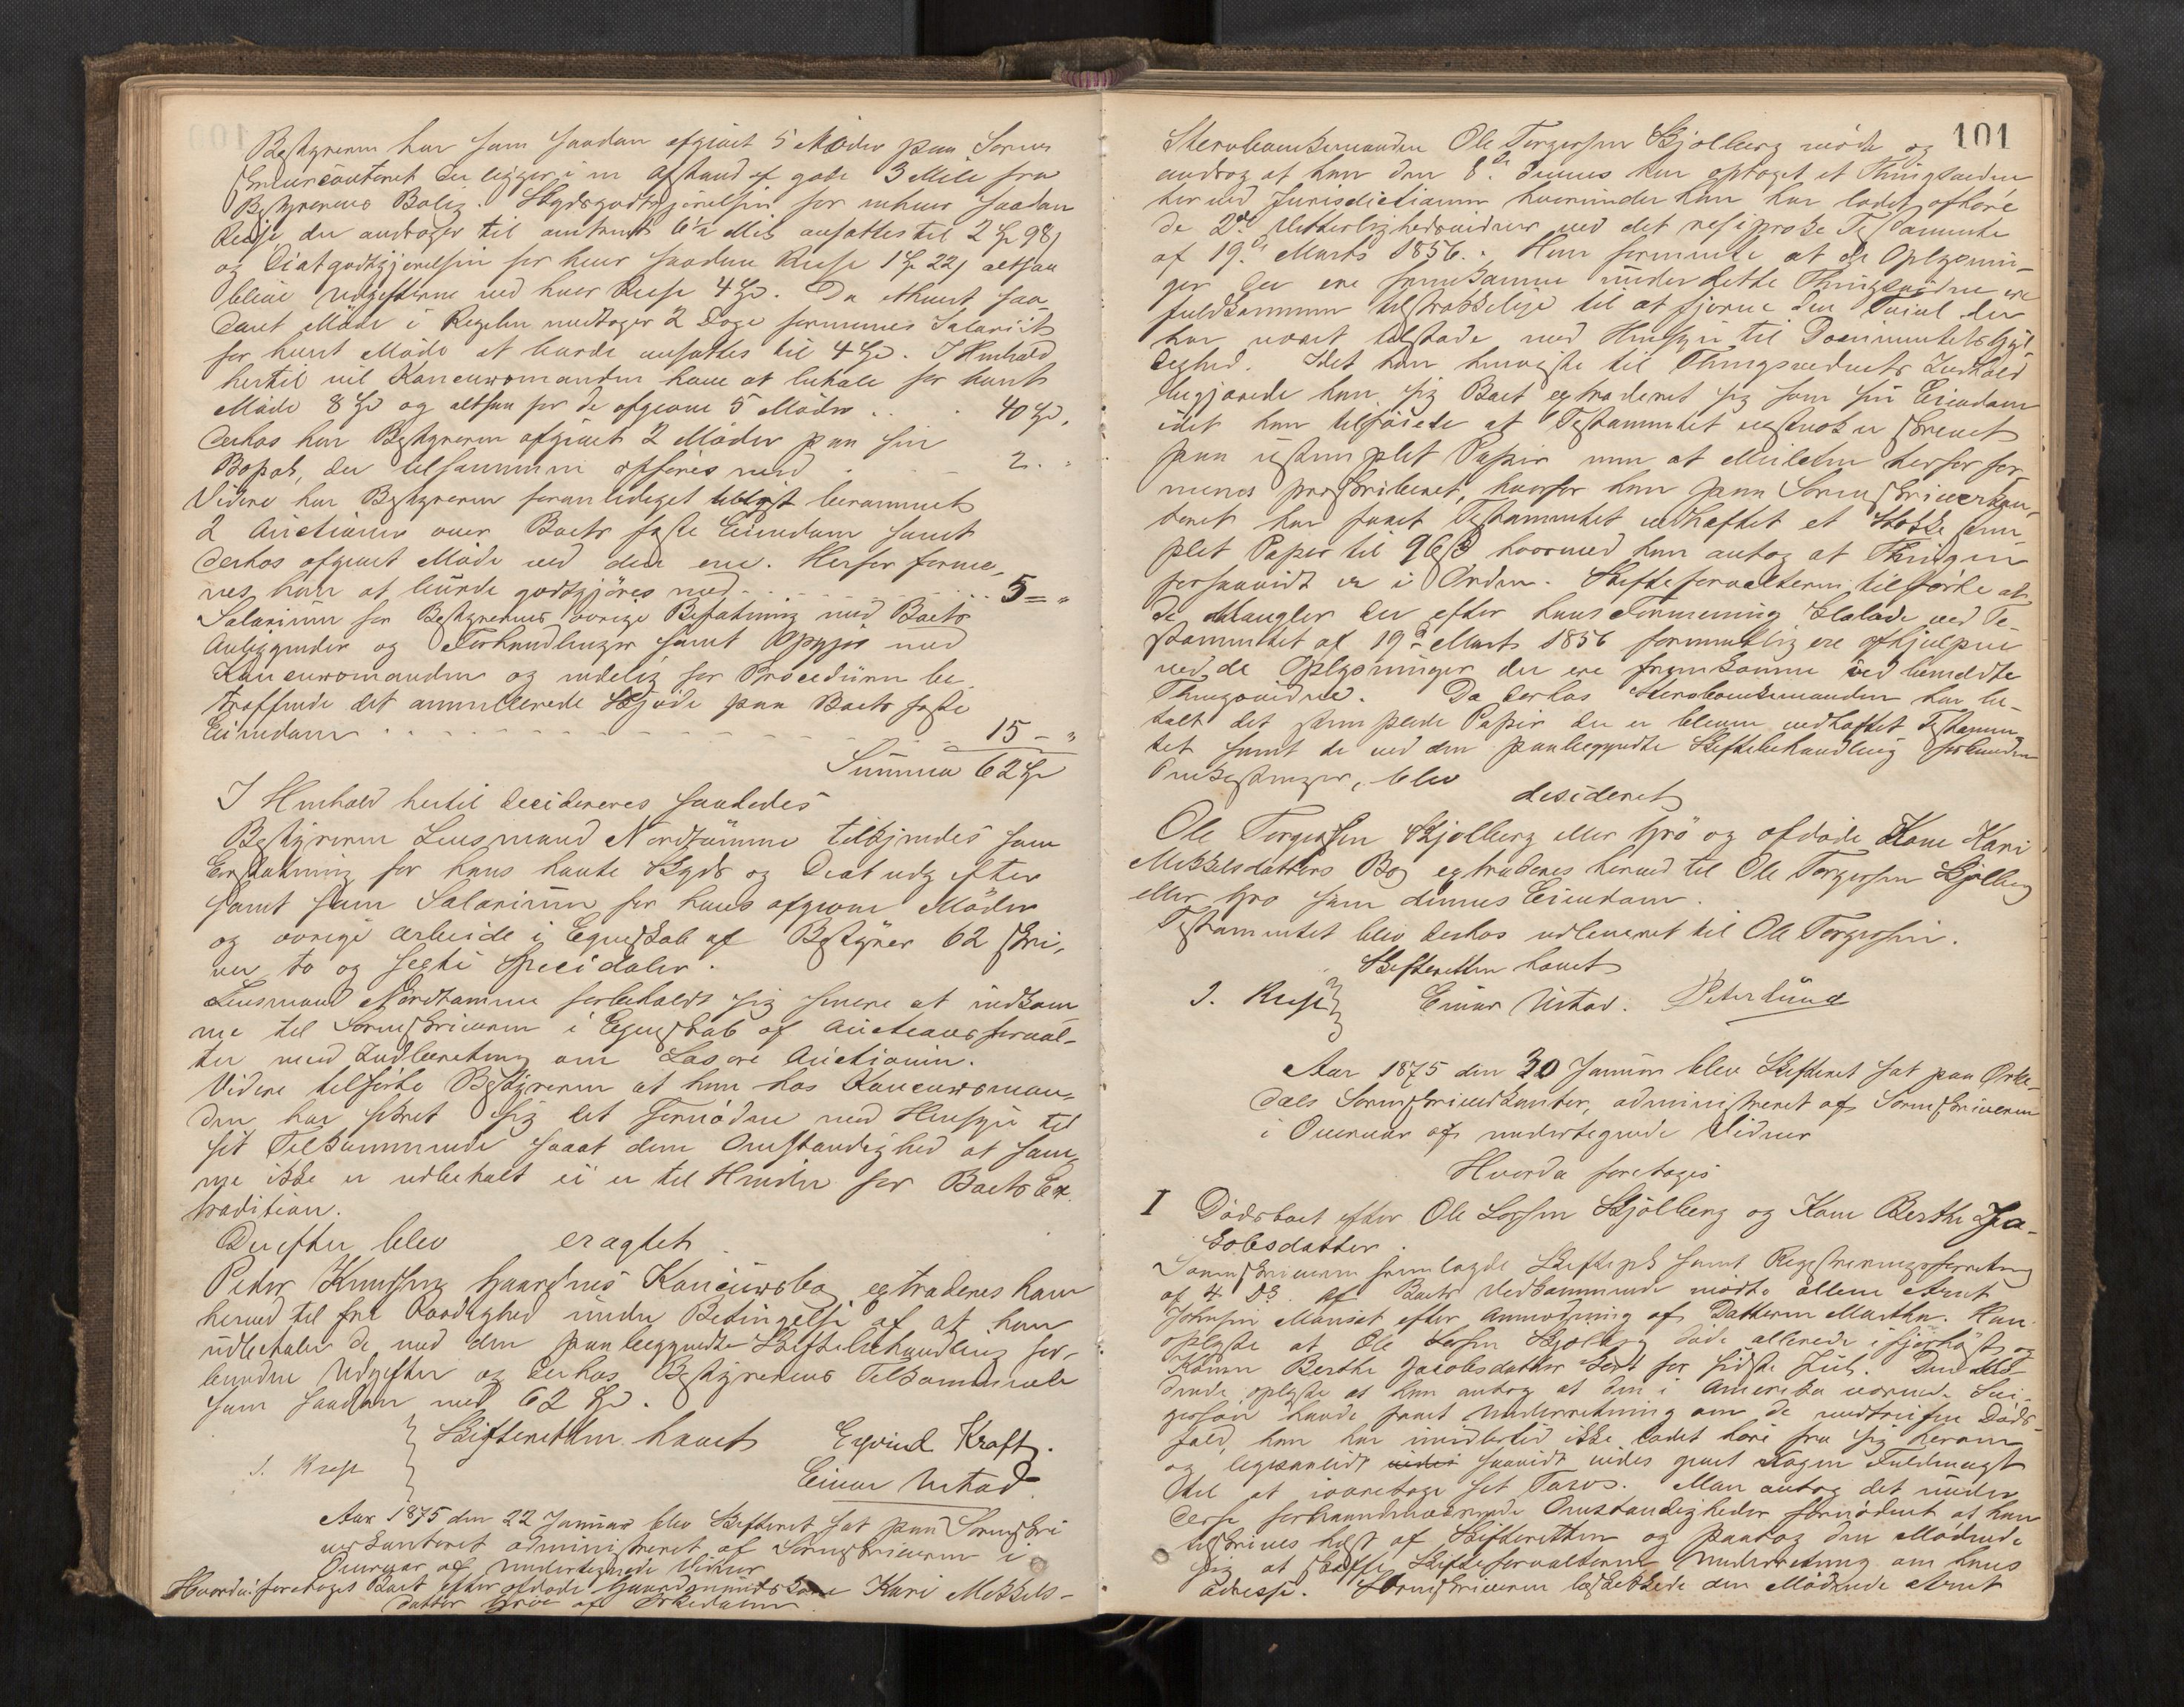 Bestyreren har som saadan afgivet 5 Møder paa Soren
skrivercontoret der ligger i en Afstand af godt 3 Mile fra
Bestyrerens Bolig. Skydsgodtgjørelsen for enhver saadan
Reise der andrager til omtrent 6½ Mil ansættes til 2 Spd 98 s
og Diætgodtgjørelsen for hver saadan Reise 1 Spd 22 s altsaa
blive Udgifterne ved hver Reise 4 Spd. Da ethvert saa-
dant Møde i Regelen medtager 2 Dage formenes Salariet
for hvert Møde at burde ansættes til 4 Spd. I Henhold
hertil vil Concursmanden have at betale for hvert
Møde 8 Spd og altsaa for de afgivne 5 Møder . . . 40 Spd.
Derhos har Bestyreren afgivet 2 Møder paa sin
Bopæl, der tilsammen opføres med . . . 2. "
Videre har Bestyreren foranlediget berammet
2 Auctioner over Boets faste Eiendom samt
derhos afgivet Møde ved den ene. Herfor forme-
nes han at burde godtgjøres med . . . 5 - "
Salarium for Bestyrerens øvrige Befatning med Boets
Anliggender og Forhandlinger samt Opgjør med
Concursmanden og endelig for Proceduren be-
træffende det annullerede Skjøde paa Boets faste
Eiendom . . . 15 - "
Summa 62 Spd
I Henhold hertil decideres saaledes
Bestyreren Lensmand Nordtømme tilkjendes som
Erstatning for hans havte Skyds og Diætudgifter
samt som Salarium for hans afgivne Møder
og øvrige Arbeide i Egenskab af Bestyrer 62 skri-
ver to og sexti Speciedaler.
Lensmand Nordtømme forbeholdt sig senere at indkom-
me til Sorenskriveren i Egenskab af Auctionsforval-
ter med Indberetning om Løsøre Auctionen.
Videre tilførte Bestyreren at han hos Concursman-
den har sikret sig det Fornødne med Hensyn til
sit Tilkommende saaat den Omstændighed at sam-
me ikke er udbetalt ei er til Hinder for Boets Ex-
tradition.
Derefter blev eragtet
Peder Knudsen Concursbo extraderes ham
herved til fri Raadighed under Betingelse af at han
udbetaler de med den paabegyndte Skiftebehandling for-
bundne Udgifter og derhos Bestyrerens Tilkommende
som saadan med 62 Spd.
Skifteretten hævet Eyvind Kraft.
Einar Ustad
Aar 1875 den 22 Januar blev Skifteret sat paa Sorenskri
vercontoret administreret af Sorenskriveren i
Overvær af undertegnede Vidner
Hvorda: foretoges Boet efter afdøde Gaardmandskone Kari Mikkels-
datter Gro af Orkedalen
101
Stervboenkemanden Ole Torgersen Skjølberg mødte og
androg at han den 8de dennes har optaget et Thingsvidne
her ved Jurisdictionen hvorunder han har ladet afhøre
de 2de Vitterlighedsvidner ved det resiproke Testamente
af 19de Marts 1856. Han formente at de Oplysnin-
ger der ere fremkomne under dette Thingsvidne ere
fuldkommen tilstrækkelige til at fjerne den Tvivl der
har været tilstede med Hensyn til Documentets Gyl-
dighed. Idet han henviste til Thingsvidnets Indhold
begjærede han sig Boet extraderet sig som sin Eiendom
idet han tilføiede at Testamentet vistnok er skrevet
paa ustemplet Papir men at Mulcten herfor for-
menes præskriberet, hvorfor han paa Sorenskrivercon-
toret har faaet Testamentet vedheftet et Stykke stem-
plet Papir til 96 s hvormed han antog at Thingen
forsaavidt er i Orden. Skifteforvalteren tilførte at
de Mangler der efter hans Formening klæbede ved Te-
stamentet af 19de Marts 1856 formentlig ere afhjulpne
ved de Oplysninger der ere fremkomne ved bemeldte
Thingsvidne. Da derhos Stervboenkemanden har be-
talt det stemplede Papir der er bleven vedheftet Testamen-
tet samt de ved den paabegyndte Skiftebehandling forbundne
Omkostninger, blev
desideret
Ole Torgersen Skjølberg eller Grø og afdøde Kone Kari
Mikkelsdatters Bo extraderes herved til Ole Torgersen Skjølberg
eller Gro som dennes Eiendom.
Testamentet blev derhos udleveret til Ole Torgersen.
Skifteretten hævet
Einar Ustad. Peter Lund
Aar 1875 den 30 Januar blev Skifteret sat paa Orke-
dals Sorenskriverkontor, administreret af Sorenskriveren
i Overvær af undertegnede Vidner
Hvorda foretoges
I Dødsboet efter Ole Larsen Skjølberg og Kone Berthe Ja-
kobsdatter.
Sorenskriveren fremlagde Skiftepk samt Registreringsforretning
af 4 ds. Af Boets Vedkommende mødte allene Arnt
Johnsen Monset efter Anmodning af Datteren Marthe. Han
oplyste at Ole Larsen Skjølberg døde allerede ifjorhøst og
Konen Berthe Jacobsdatter kort før sidste Jul. Den Mø-
dende oplyste at han antog at den i Amerika værende Svi-
gersøn havde faaet Underretning om de indtrufne Døds-
fald, han har imidlertid ikke ladet høre fra sig herom
og ligesaalidt saavidt vides givet Nogen Fuldmagt
til at ivaretage sit Tarv. Man antog det under
disse forhaandenværende Omstændigheder fornødent at han
tilskrives herfra af Skifteretten og paatog den Mødende
sig at skaffe Skifteforvalteren Underretning om hans
Adresse. Sorenskriveren beskikkede den Mødende Arnt